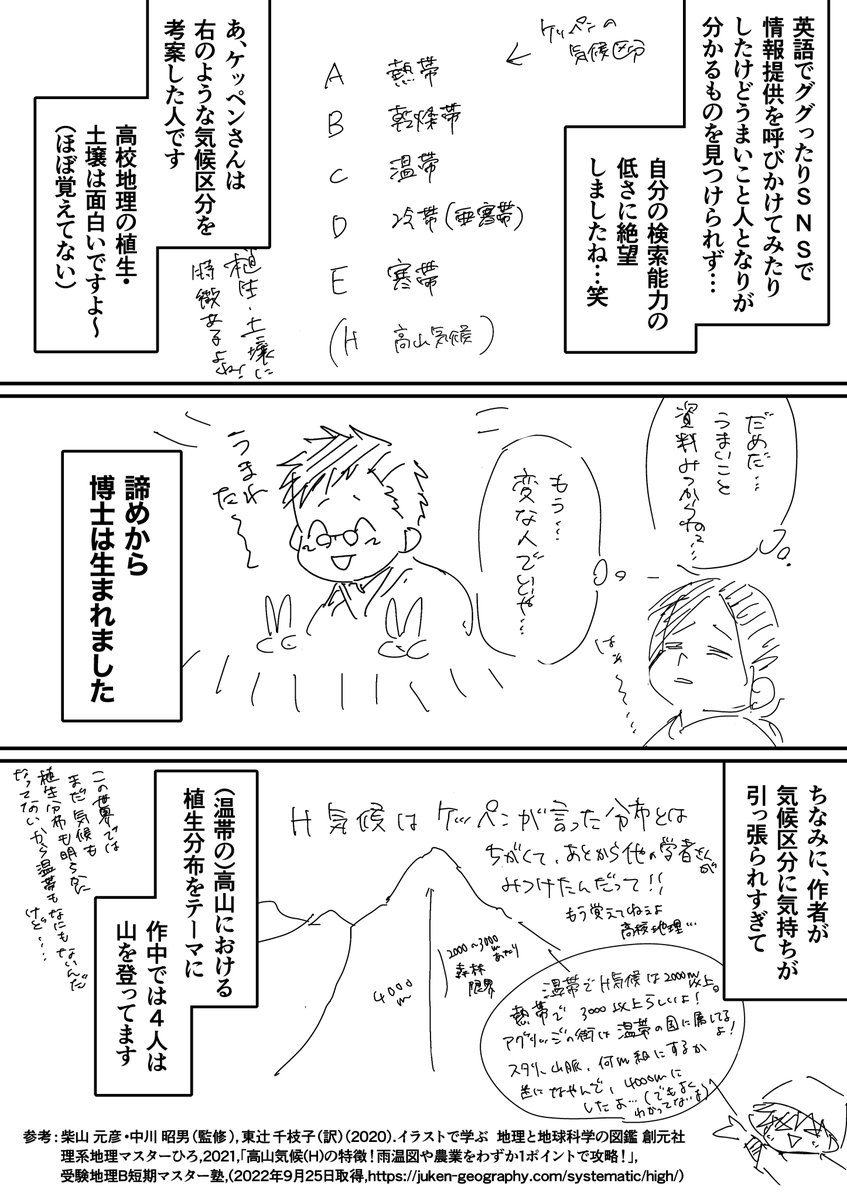 英語でググったりSNSで
情報提供を呼びかけてみたり
したけどうまいこと人となりが
分かるものを見つけられず…
自分の検索能力の
低さに絶望
しましたね…笑
ケッペンの
気候区分
A 熱帯
B 乾燥帯
C 温帯
D 冷帯(亜寒帯)
E 寒帯
(H 高山気候)
あ、ケッペンさんは
右のような気候区分を
考案した人です
植生・土壌に
特徴あるよね!
高校地理の植生・
土壌は面白いですよ〜
(ほぼ覚えてない)
だめだ…
うまいこと
資料みつからねぇ…
もう…
変な人でいいや…
はぁ〜…
うまれ
た〜
諦めから
博士は生まれました
ちなみに、作者が
気候区分に気持ちが
引っ張られすぎて
H気候はケッペンが言った分布とは
ちがくて、あとから他の学者さんが
みつけたんだって!!
もう覚えてねぇよ
高校地理…
2000〜3000
mあたり
森林
限界
4000
m
温帯でH気候は2000m以上。
熱帯で3000以上らしいよ!
アグリッジの街は温帯の国に属してるよ!
山脈、何m組にするか
なやんで、4000mに
したよ…(でもよく
わかってな…)
(温帯の)高山における
植生分布をテーマに
作中では4人は
山を登ってます
この世界では
まだ気候も
植生分布も明らかに
なってないから温帯も
なにもないんだ
けど…
参考:柴山 元彦・中川 昭男(監修),東辻 千枝子(訳)(2020).イラストで学ぶ 地理と地球科学の図鑑 創元社
理系地理マスターひろ,2021,「高山気候(H)の特徴!雨温図や農業をわずか1ポイントで攻略!」,
受験地理B短期マスター塾,(2022年9月25日取得,https://juken-geography.com/systematic/high/)